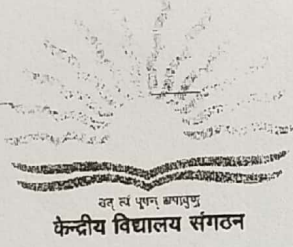 तत् त्वं पूषन् अपावृणु
केन्द्रीय विद्यालय संगठन